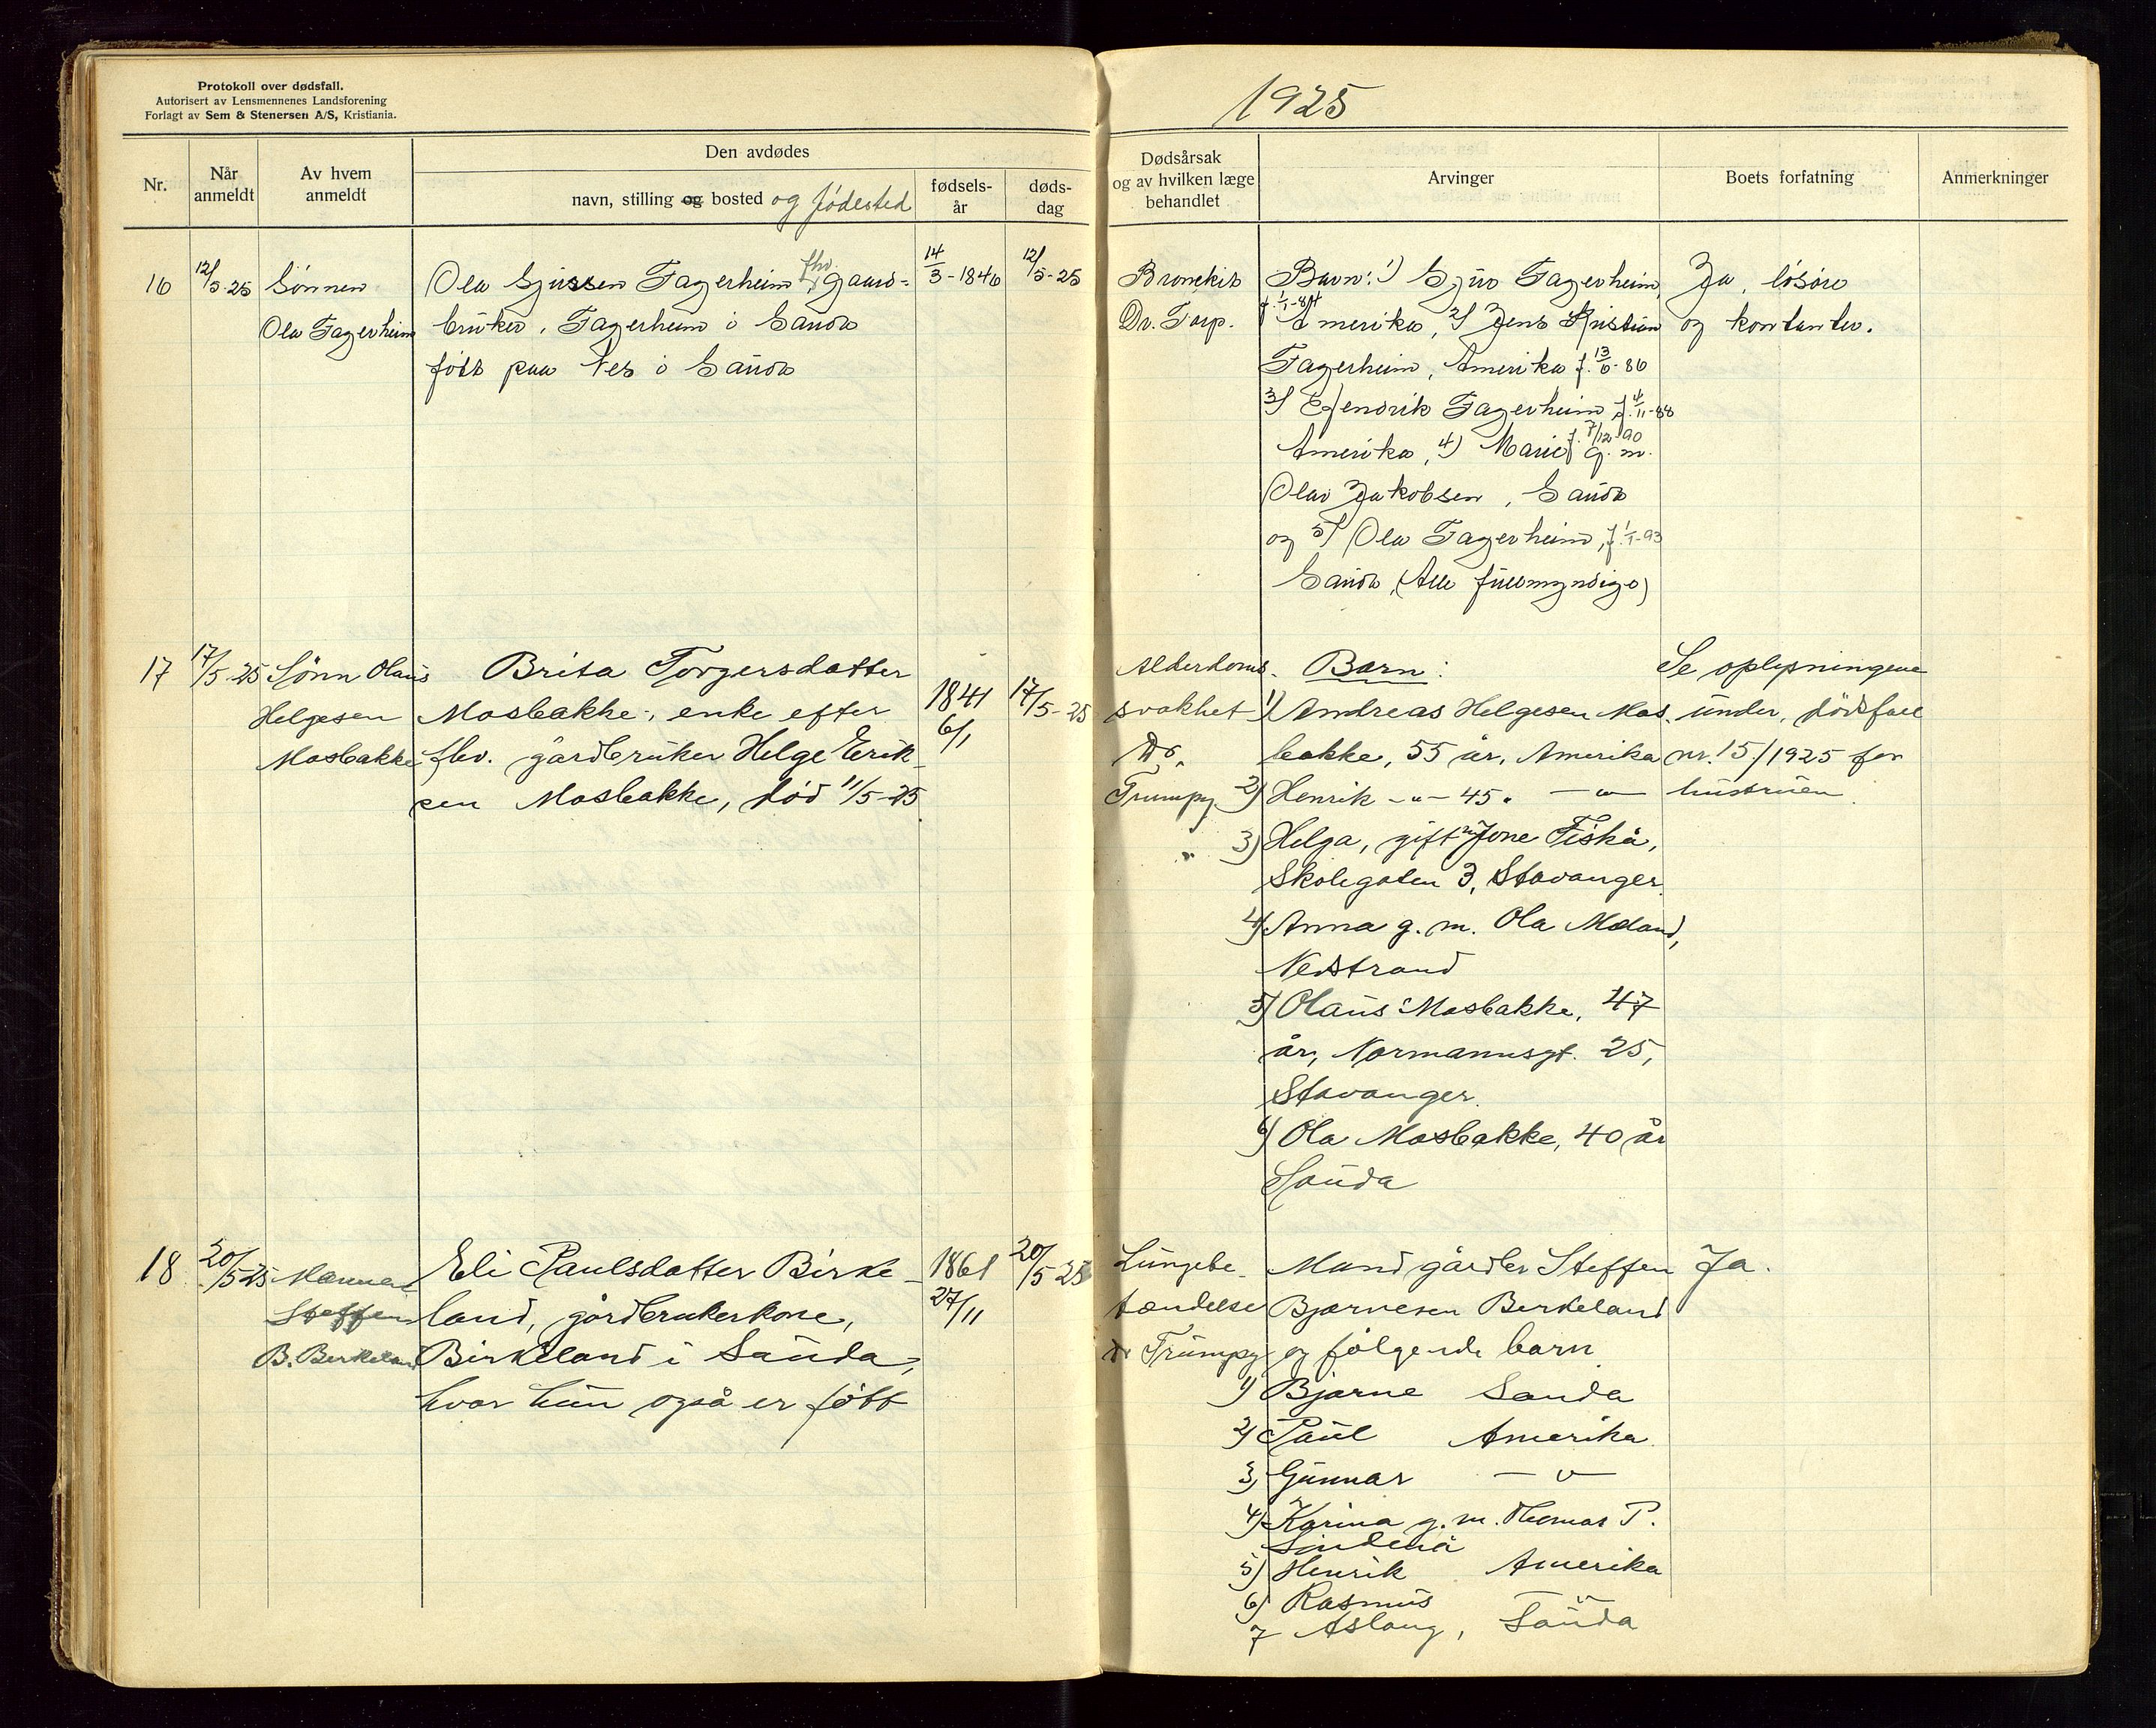 Protokoll over dødsfall.
Autorisert av Lensmennenes Landsforening
Forlagt av Sem & Stenersen A/S, Kristiania.
1925
Nr.
Når anmeldt
Av hvem anmeldt
Den avdødes
navn, stilling og bosted og fødested
fødsels-år
døds-dag
Dødsårsak og av hvilken læge behandlet
Arvinger
Boets forfatning
Anmerkninger
16
12/5-25
Sønnen
Ola Fagerheim
Ola Sjursen Fagerheim fhv. gaard-
bruker, Fagerheim i Sauda
født paa Nes i Sauda
14/3-1846
12/5-25
Bronckit
Dr. Torp.
Barn: 1) Sjur Fagerheim,
f. 1/1-84 Amerika, 2) Jens Kristian
Fagerheim, Amerika f. 13/6-86
3) Hendrik Fagerheim f. 4/11-88
Amerika, 4) Marie f. 7/12-90 g. m.
Olav Jakobsen, Sauda
og 5) Ola Fagerheim, f. 1/1-93
Sauda, (Alle fuldmyndige)
Ja, løsøre
og kontanter.
17
17/5-25
Sønn Olaus
Helgesen
Mosbakke
Brita Torgersdatter
Mosbakke, enke efter
fhv. gårdbruker Helge Erik-
sen Mosbakke, død 11/5-25
1841
6/1
17/5-25
Alderdoms-
svakhet
Dr.
Trumpy
Barn:
1) Andreas Helgesen Mos-
bakke, 55 år, Amerika
2) Henrik -"- 45 " -"-
3) Helga, gift m Jone Fiskå,
Skolegaten 3, Stavanger.
4) Anna g. m. Ola Mæland,
Nedstrand
5) Olaus Mosbakke, 47
år, Normannsgt. 25,
Stavanger.
6) Ola Mosbakke, 40 år
Sauda
Se oplysningene
under dødsfall
nr. 15/1925 for
hustruen.
18
20/5-25
Mannen
Steffen
B. Birkeland
Eli Paulsdatter Birke-
land, gårdbrukerkone,
Birkeland i Sauda,
hvor hun også er født
1861
27/11
20/5 25
Lungebe-
tændelse
Dr Trumpy
Mand gårdbr Steffen
Bjarnesen Birkeland
og følgende barn
1) Bjarne Sauda
2) Paul Amerika
3) Gunnar -"-
4) Karina g. m. Thomas P.
5) Henrik Amerika
6) Rasmus "
7 Aslaug, Sauda
Ja.